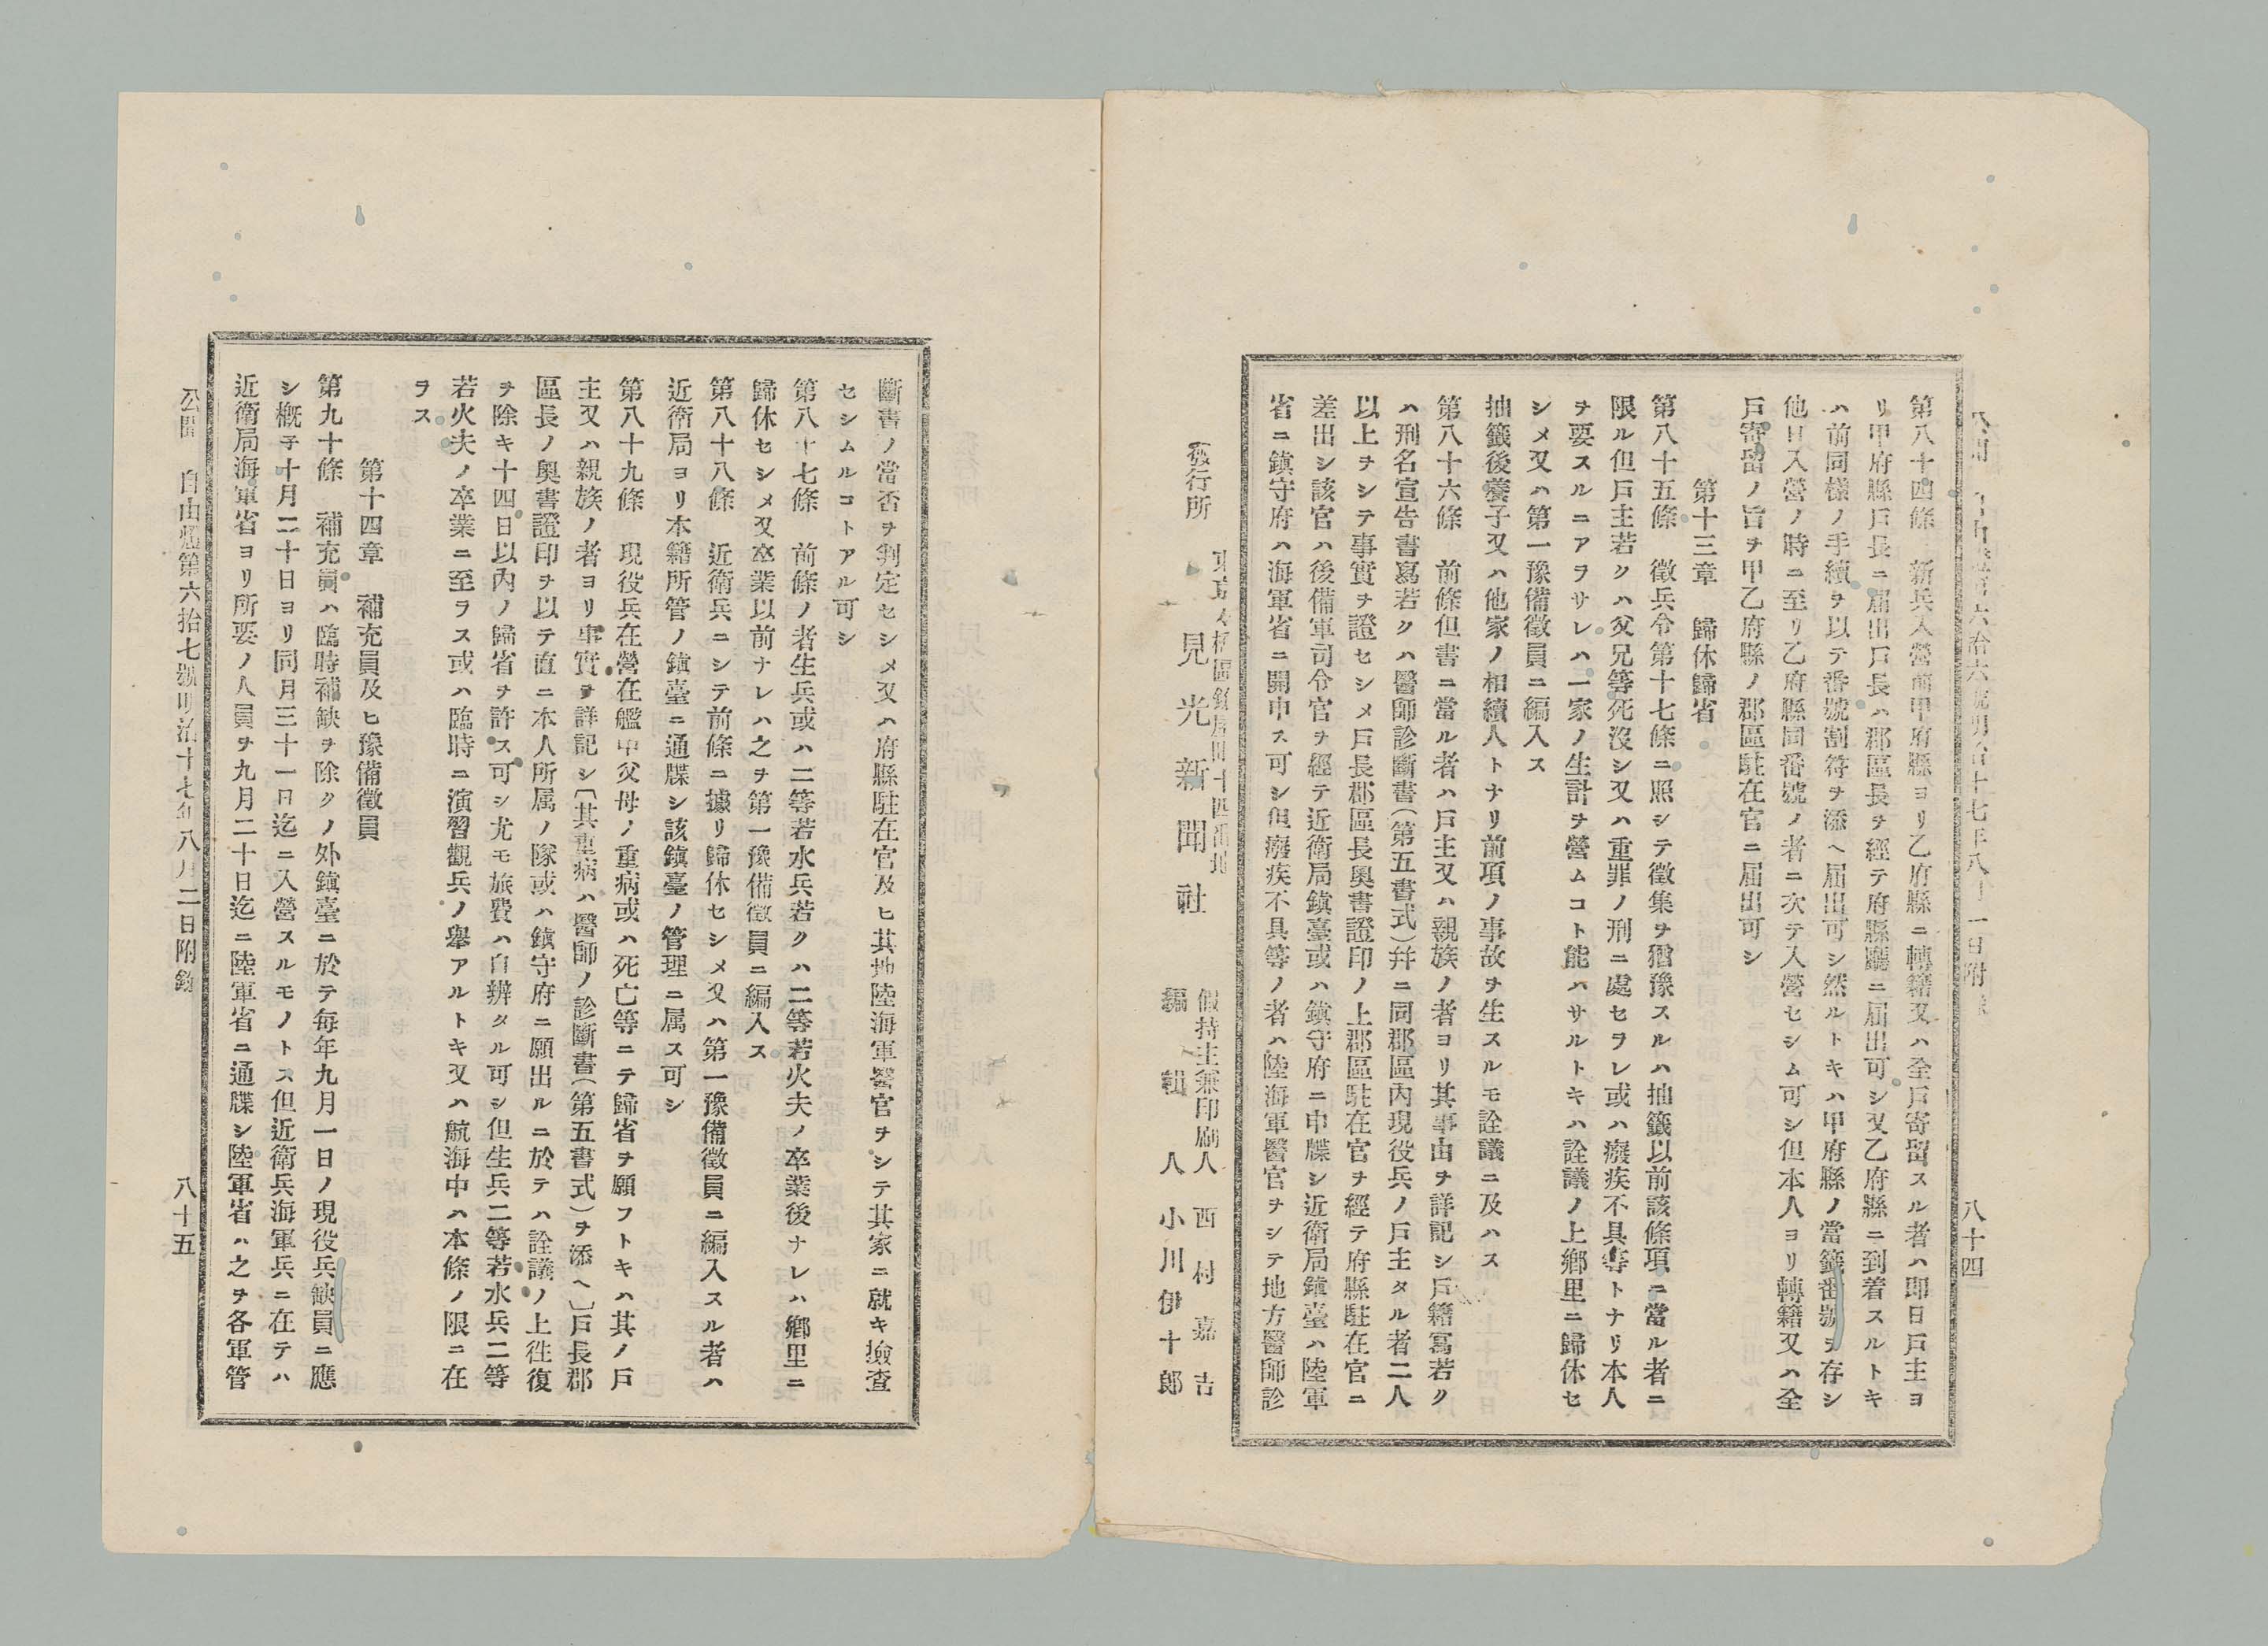 自由燈第六拾六號明治十七年八月一日附錄
八十四
第八十四條　新兵入營前甲府縣ヨリ乙府縣ニ轉籍又ハ全戸寄留スル者ハ即日戸主ヨ
リ甲府縣戸長ニ届出戸長ハ郡區長ヲ經テ府縣廳ニ届出可シ又乙府縣ニ到着スルトキ
ハ前同樣ノ手續ヲ以テ番號割符ヲ添ヘ届出可シ然ルトキハ甲府縣ノ當籤番號ヲ存シ
他日入營ノ時ニ至リ乙府縣同番號ノ者ニ次テ入營セシム可シ但本人ヨリ轉籍又ハ全
戸寄留ノ旨ヲ甲乙府縣ノ郡區駐在官ニ届出可シ
第十三章　歸休歸省
第八十五條　徵兵令第十七條ニ照シテ徵集ヲ猶豫スルハ抽籤以前該條項ニ當ル者ニ
限ル但戸主若クハ父兄等死沒シ又ハ重罪ノ刑ニ處セラレ或ハ癈疾不具等トナリ本人
ヲ要スルニアラサレハ一家ノ生計ヲ營ムコト能ハサルトキハ詮議ノ上鄉里ニ歸休セ
シメ又ハ第一豫備徵員ニ編入ス
抽籤後養子又ハ他家ノ相續人トナリ前項ノ事故ヲ生スルモ詮議ニ及ハス
第八十六條　前條但書ニ當ル者ハ戸主又ハ親族ノ者ヨリ其事由ヲ詳記シ戸籍寫若ク
ハ刑名宣告書寫若クハ醫師診斷書(第五書式)幷ニ同郡區內現役兵ノ戸主タル者二人
以上ヲシテ事實ヲ證セシメ戸長郡區長奧書證印ノ上郡區駐在官ヲ經テ府縣駐在官ニ
差出シ該官ハ後備軍司令官ヲ經テ近衛局鎮臺或ハ鎮守府ニ申牒シ近衛局鎮臺ハ陸軍
省ニ鎮守府ハ海軍省ニ開申ス可シ但癈疾不具等ノ者ハ陸海軍醫官ヲシテ地方醫師診
假持主兼印刷人　西村嘉吉
(發行所　見光新聞社
編輯人　小川伊十郎
斷書ノ當否ヲ判定セシメ又ハ府縣駐在官及ヒ其地陸海軍醫官ヲシテ其家ニ就キ撿査
セシムルコトアル可シ
第八十七條　前條ノ者生兵或ハ二等若水兵若クハ二等若火夫ノ卒業後ナレハ鄉里ニ
歸休セシメ又卒業以前ナレハ之ヲ第一豫備徵員ニ編入ス
第八十八條　近衛兵ニシテ前條ニ據リ歸休セシメ又ハ第一豫備徵員ニ編入スル者ハ
近衛局ヨリ本籍所管ノ鎮臺ニ通牒シ該鎮臺ノ管理ニ属ス可シ
第八十九條　現役兵在營在艦中父母ノ重病或ハ死亡等ニテ歸省ヲ願フトキハ其ノ戸
主又ハ親族ノ者ヨリ事實ヲ詳記シ〔其重病ハ醫師ノ診斷書(第五書式)ヲ添ヘ〕戸長郡
區長ノ奧書證印ヲ以テ直ニ本人所属ノ隊或ハ鎮守府ニ願出ルニ於テハ詮議ノ上徃復
ヲ除キ十四日以內ノ歸省ヲ許ス可シ尤モ旅費ハ自辨タル可シ但生兵二等若水兵二等
若火夫ノ卒業ニ至ラス或ハ臨時ニ演習觀兵ノ舉アルトキ又ハ航海中ハ本條ノ限ニ在
ラス
第十四章　補充員及ヒ豫備徵員
第九十條　補充員ハ臨時補缺ヲ除クノ外鎮臺ニ於テ每年九月一日ノ現役兵缺員ニ應
シ概子十月二十日ヨリ同月三十一日迄ニ入營スルモノトス但近衛兵海軍兵ニ在テハ
近衛局海軍省ヨリ所要ノ人員ヲ九月二十日迄ニ陸軍省ニ通牒シ陸軍省ハ之ヲ各軍管
公聞　自由燈第六拾七號明治十七年八月二日附錄
八十五